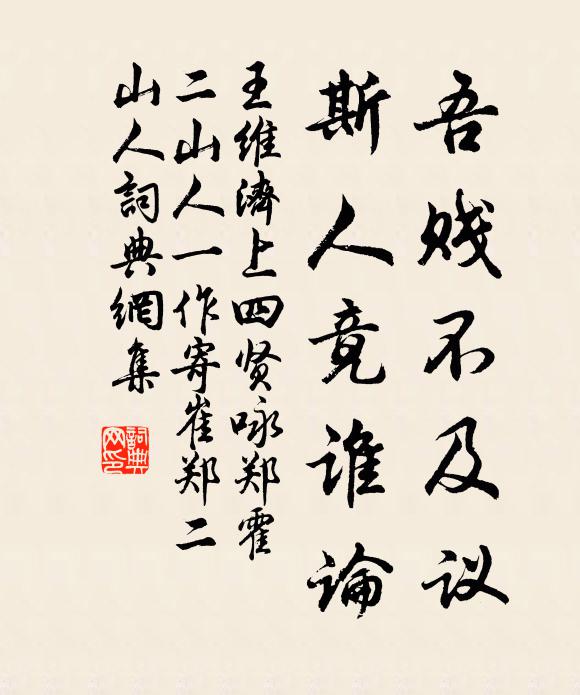 吾贱不及议
斯人竟谁论
王维濟上四贤咏郑霍
二山人一作寄崔郑二
山人詞典網集
詞典
网印